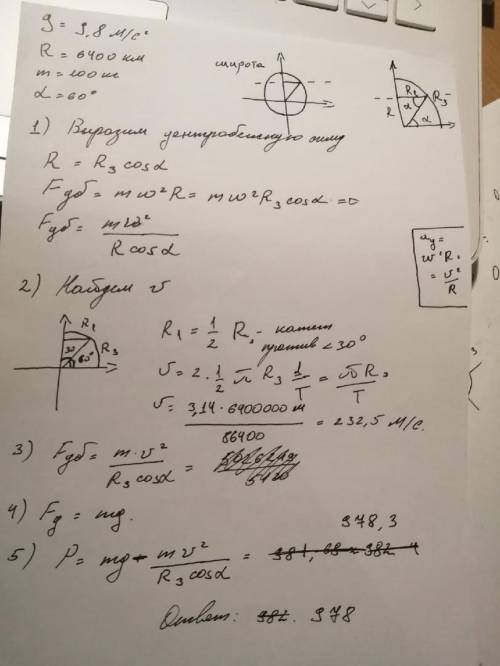 g = 9,8 м/с²
R = 6400 км
m = 100 кг
α = 60°
широта
R₁ R₃
α
R α
1) Выразим центробежную силу
R = R₃ cosα
Fцб = mω²R = mω²R₃ cosα =>
Fцб = mv² / R cosα
aц =
ω²R =
= v²/R
2) Найдем v
R₁
30 60° R₃
R₁ = 1/2 R₃ - катет
против ∠30°
v = 2 · 1/2 π R₃ 1/T = πR₃/T
v = 3,14 · 6400000 м / 86400 = 232,5 м/с.
3) Fцб = m · v² / R₃ cosα =
4) Fд = mg.
978,3
5) P = mg - mv² / R₃ cosα = 981,68 ≈ 982 Н
Ответ: 982. 978